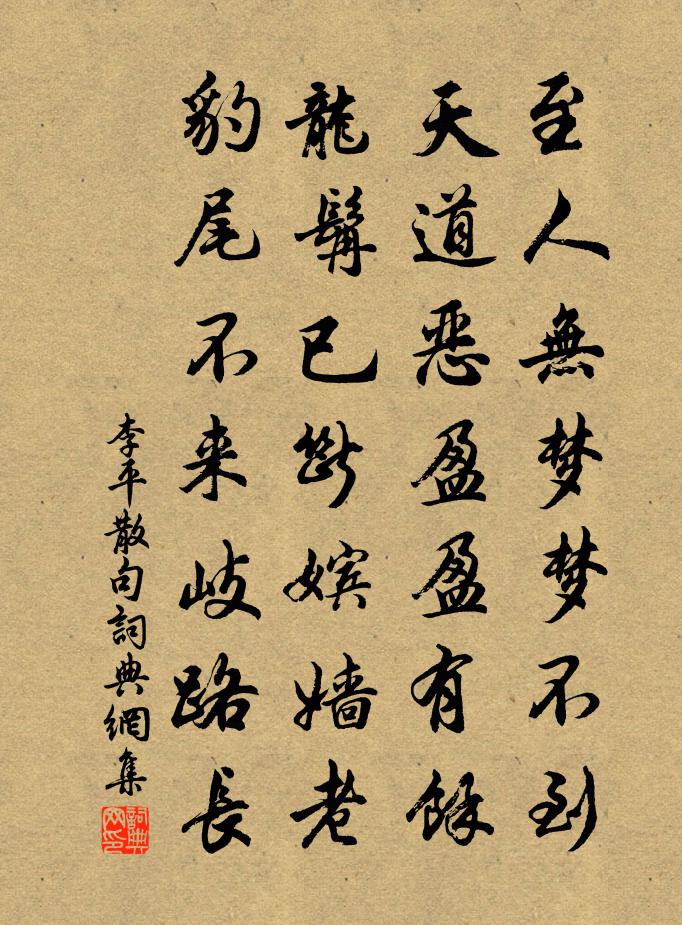 至人無梦梦不到
天道恶盈盈有餘
龍髯已斷嫔嫱老
豹尾不来岐路長
李平散句詞典網集
詞典网印